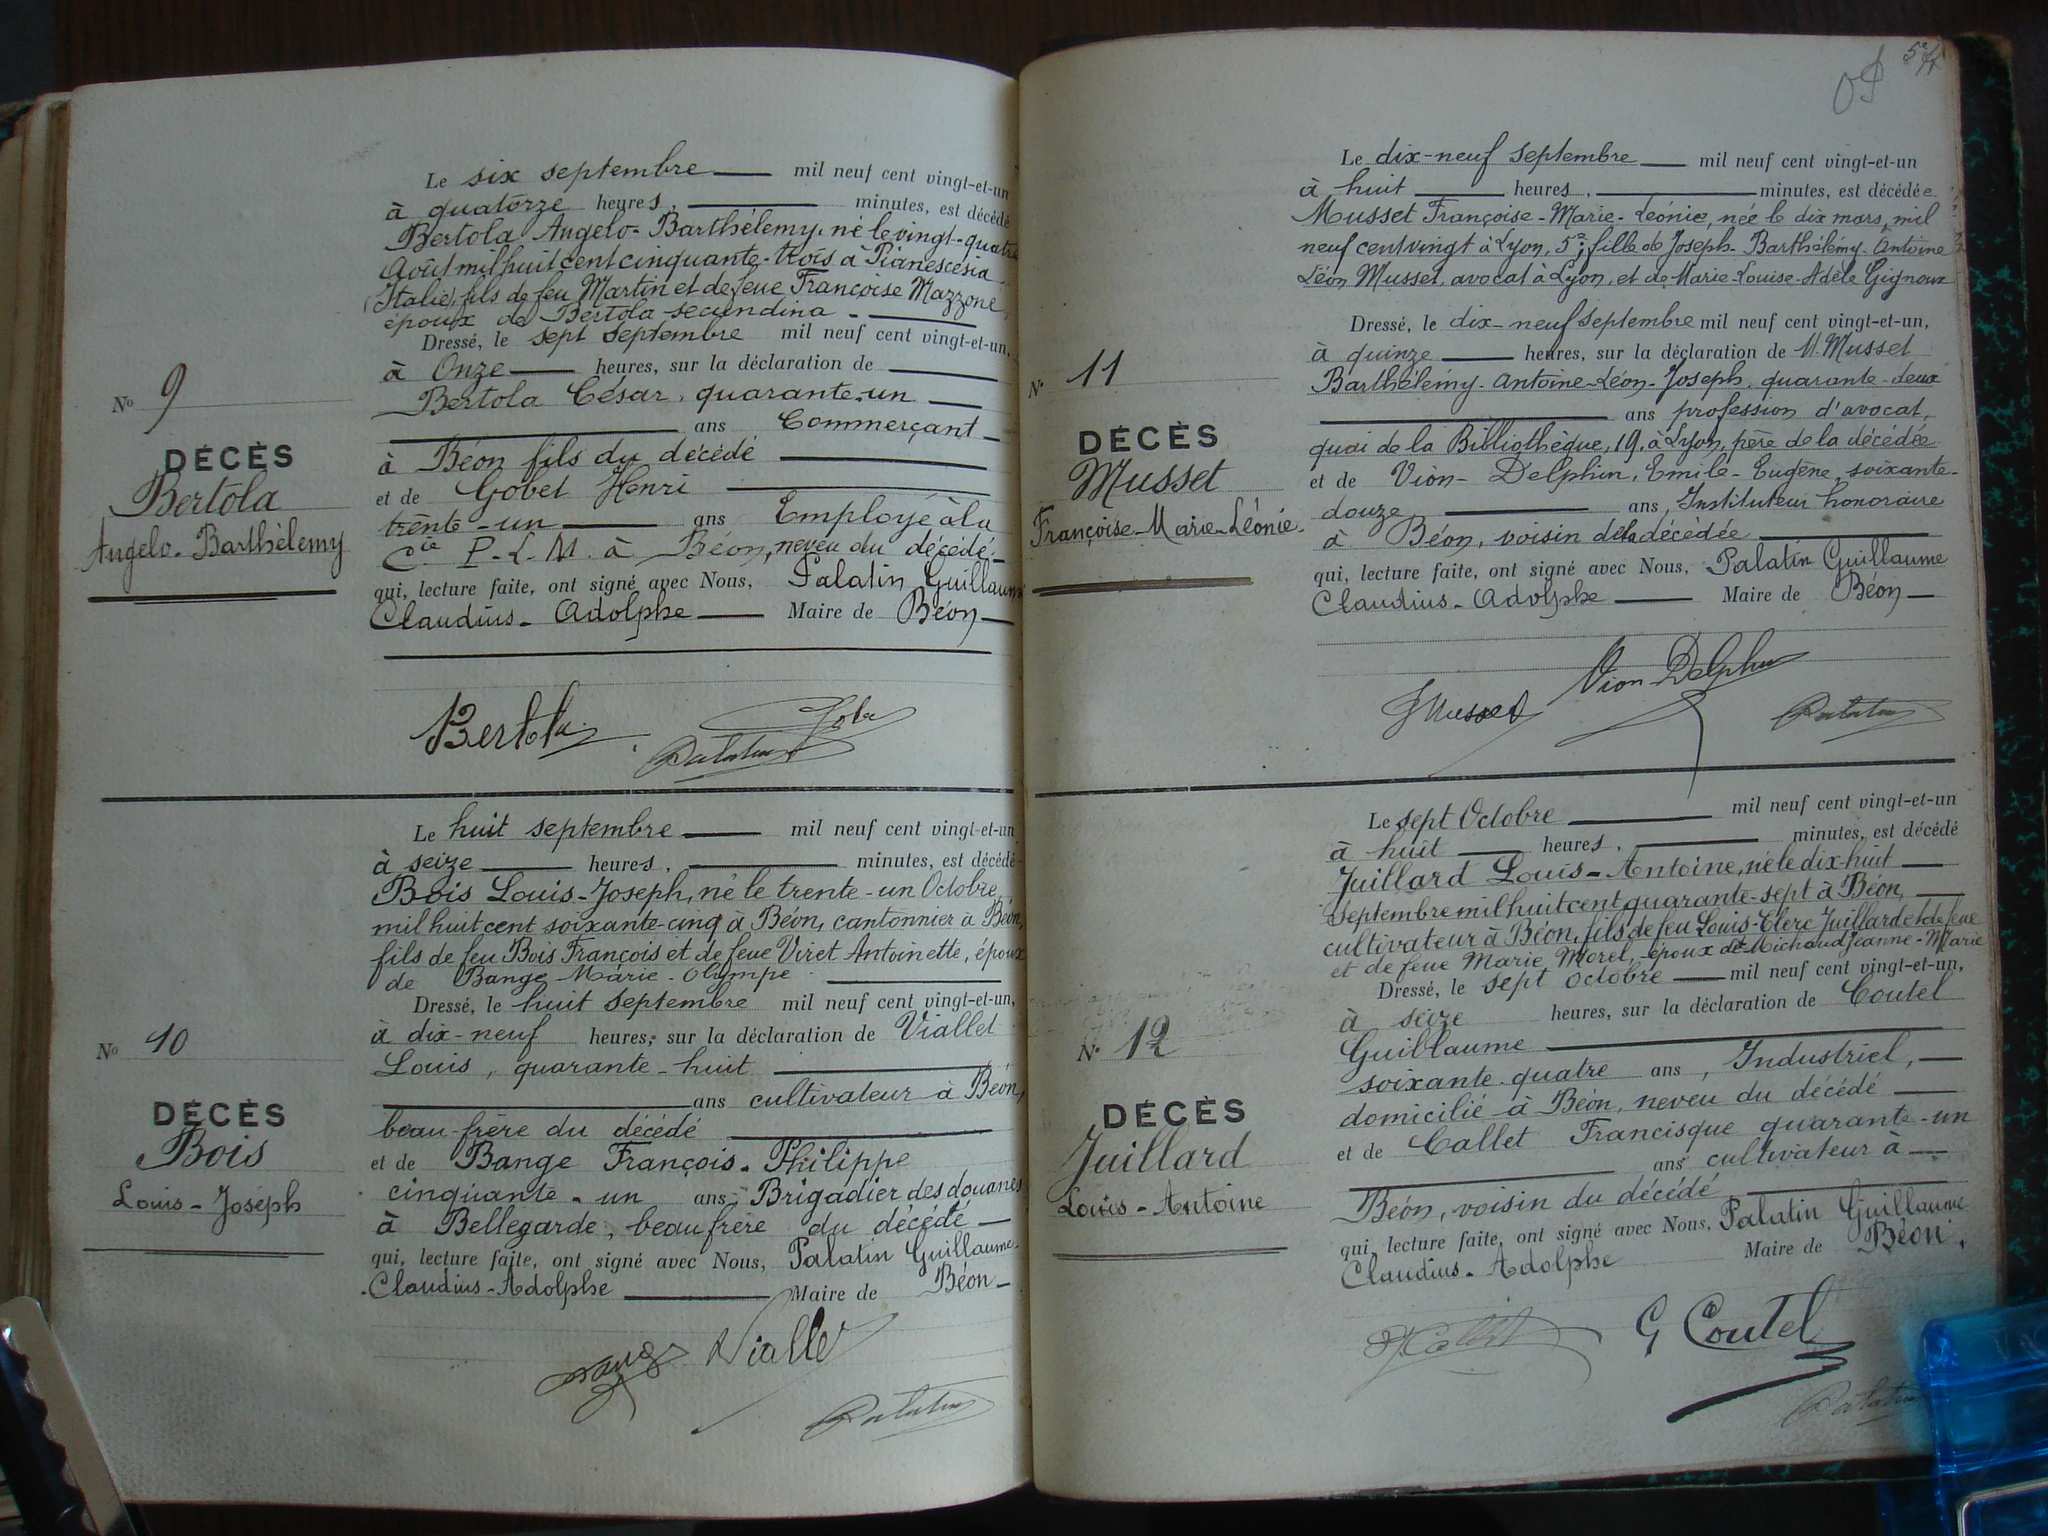 Le six septembre mil neuf cent vingt-et-un
à quatorze heures, minutes, est décédé
Bertola Angelo-Barthélemy, né le vingt-quatre
Août mil huit cent cinquante-trois à Pianescesia
(Italie), fils de feu Martin et de feue Françoise Mazzone,
époux de Bertola secundina
Dressé, le sept septembre mil neuf cent vingt-et-un,
à Onze heures, sur la déclaration de
Bertola César, quarante-un
ans Commerçant
à Béon fils du décédé
et de Gobet Henri
trente-un ans Employé à la
Cie P.L.M. à Béon, neveu du décédé
qui, lecture faite, ont signé avec Nous, Palatin Guillaume
Claudius-Adolphe Maire de Béon
No 9
DÉCÈS
Bertola
Angelo-Barthélemy
Bertola
Palatin
Le huit septembre mil neuf cent vingt-et-un
à seize heures, minutes, est décédé
Bois Louis-Joseph, né le trente-un Octobre
mil huit cent soixante-cinq à Béon, cantonnier à Béon,
fils de feu Bois François et de feue Viret Antoinette, époux
de Bange Marie-Olympe
Dressé, le huit septembre mil neuf cent vingt-et-un,
à dix-neuf heures, sur la déclaration de Viallet
Louis, quarante-huit
ans cultivateur à Béon,
beau-frère du décédé
et de Bange François-Philippe
cinquante-un ans, Brigadier des douanes
à Bellegarde, beau frère du décédé
qui, lecture faite, ont signé avec Nous, Palatin Guillaume
Claudius-Adolphe Maire de Béon
No 10
DÉCÈS
Bois
Louis-Joseph
Viallet
Palatin
Le dix-neuf septembre mil neuf cent vingt-et-un
à huit heures, minutes, est décédée
Musset Françoise-Marie-Léonie, née le dix mars, mil
neuf cent vingt à Lyon, 5e; fille de Joseph-Barthélémy-Antoine
Léon Musset, avocat à Lyon, et de Marie-Louise-Adèle Gignoux
Dressé, le dix-neuf septembre mil neuf cent vingt-et-un,
à quinze heures, sur la déclaration de M. Musset
Barthélémy-Antoine-Léon-Joseph, quarante-deux
ans profession d'avocat,
quai de la Bibliothèque, 19, à Lyon, père de la décédée
et de Vion-Delphin, Emile-Eugène, soixante-
douze ans, Instituteur honoraire
à Béon, voisin de la décédée
qui, lecture faite, ont signé avec Nous, Palatin Guillaume
Claudius-Adolphe Maire de Béon
No 11
DÉCÈS
Musset
Françoise-Marie-Léonie
J Musset
Vion Delphin
Palatin
Le sept Octobre mil neuf cent vingt-et-un
à huit heures, minutes, est décédé
Juillard Louis-Antoine, né le dix-huit
Septembre mil huit cent quarante-sept à Béon,
cultivateur à Béon, fils de feu Louis-Clerc Juillard et de feue
et de feue Marie Morel, époux de Michaud Jeanne-Marie
Dressé, le sept octobre mil neuf cent vingt-et-un,
à seize heures, sur la déclaration de Coutel
Guillaume
soixante-quatre ans, Industriel,
domicilié à Béon, neveu du décédé
et de Callet Francisque quarante-un
ans cultivateur à
Béon, voisin du décédé
qui, lecture faite, ont signé avec Nous, Palatin Guillaume
Claudius-Adolphe Maire de Béon.
No 12
DÉCÈS
Juillard
Louis-Antoine
G Coutel
Palatin